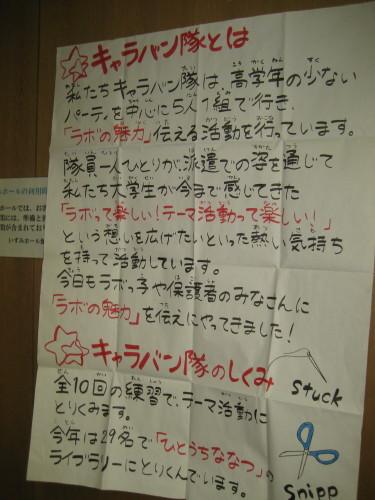 キャラバン隊とは
私たちキャラバン隊は、高学年の少ない
パーティを中心に5人1組で行き、
「ラボの魅力」伝える活動を行っています。
隊員一人ひとりが、派遣での姿を通じて
私たち大学生が今まで感じてきた
「ラボって楽しい!テーマ活動って楽しい!」
という想いを広げたいといった熱い気持ち
を持って活動しています。
今日もラボっ子や保護者のみなさんに
「ラボの魅力」を伝えにやってきました!
キャラバン隊のしくみ
全10回の練習で、テーマ活動に
とりくみます。
今年は29名で「ひとうちななつ」の
ライブラリーにとりくんでいます。
stuck
snipp
ホールの利用
ホールでは、お客
いずみホール